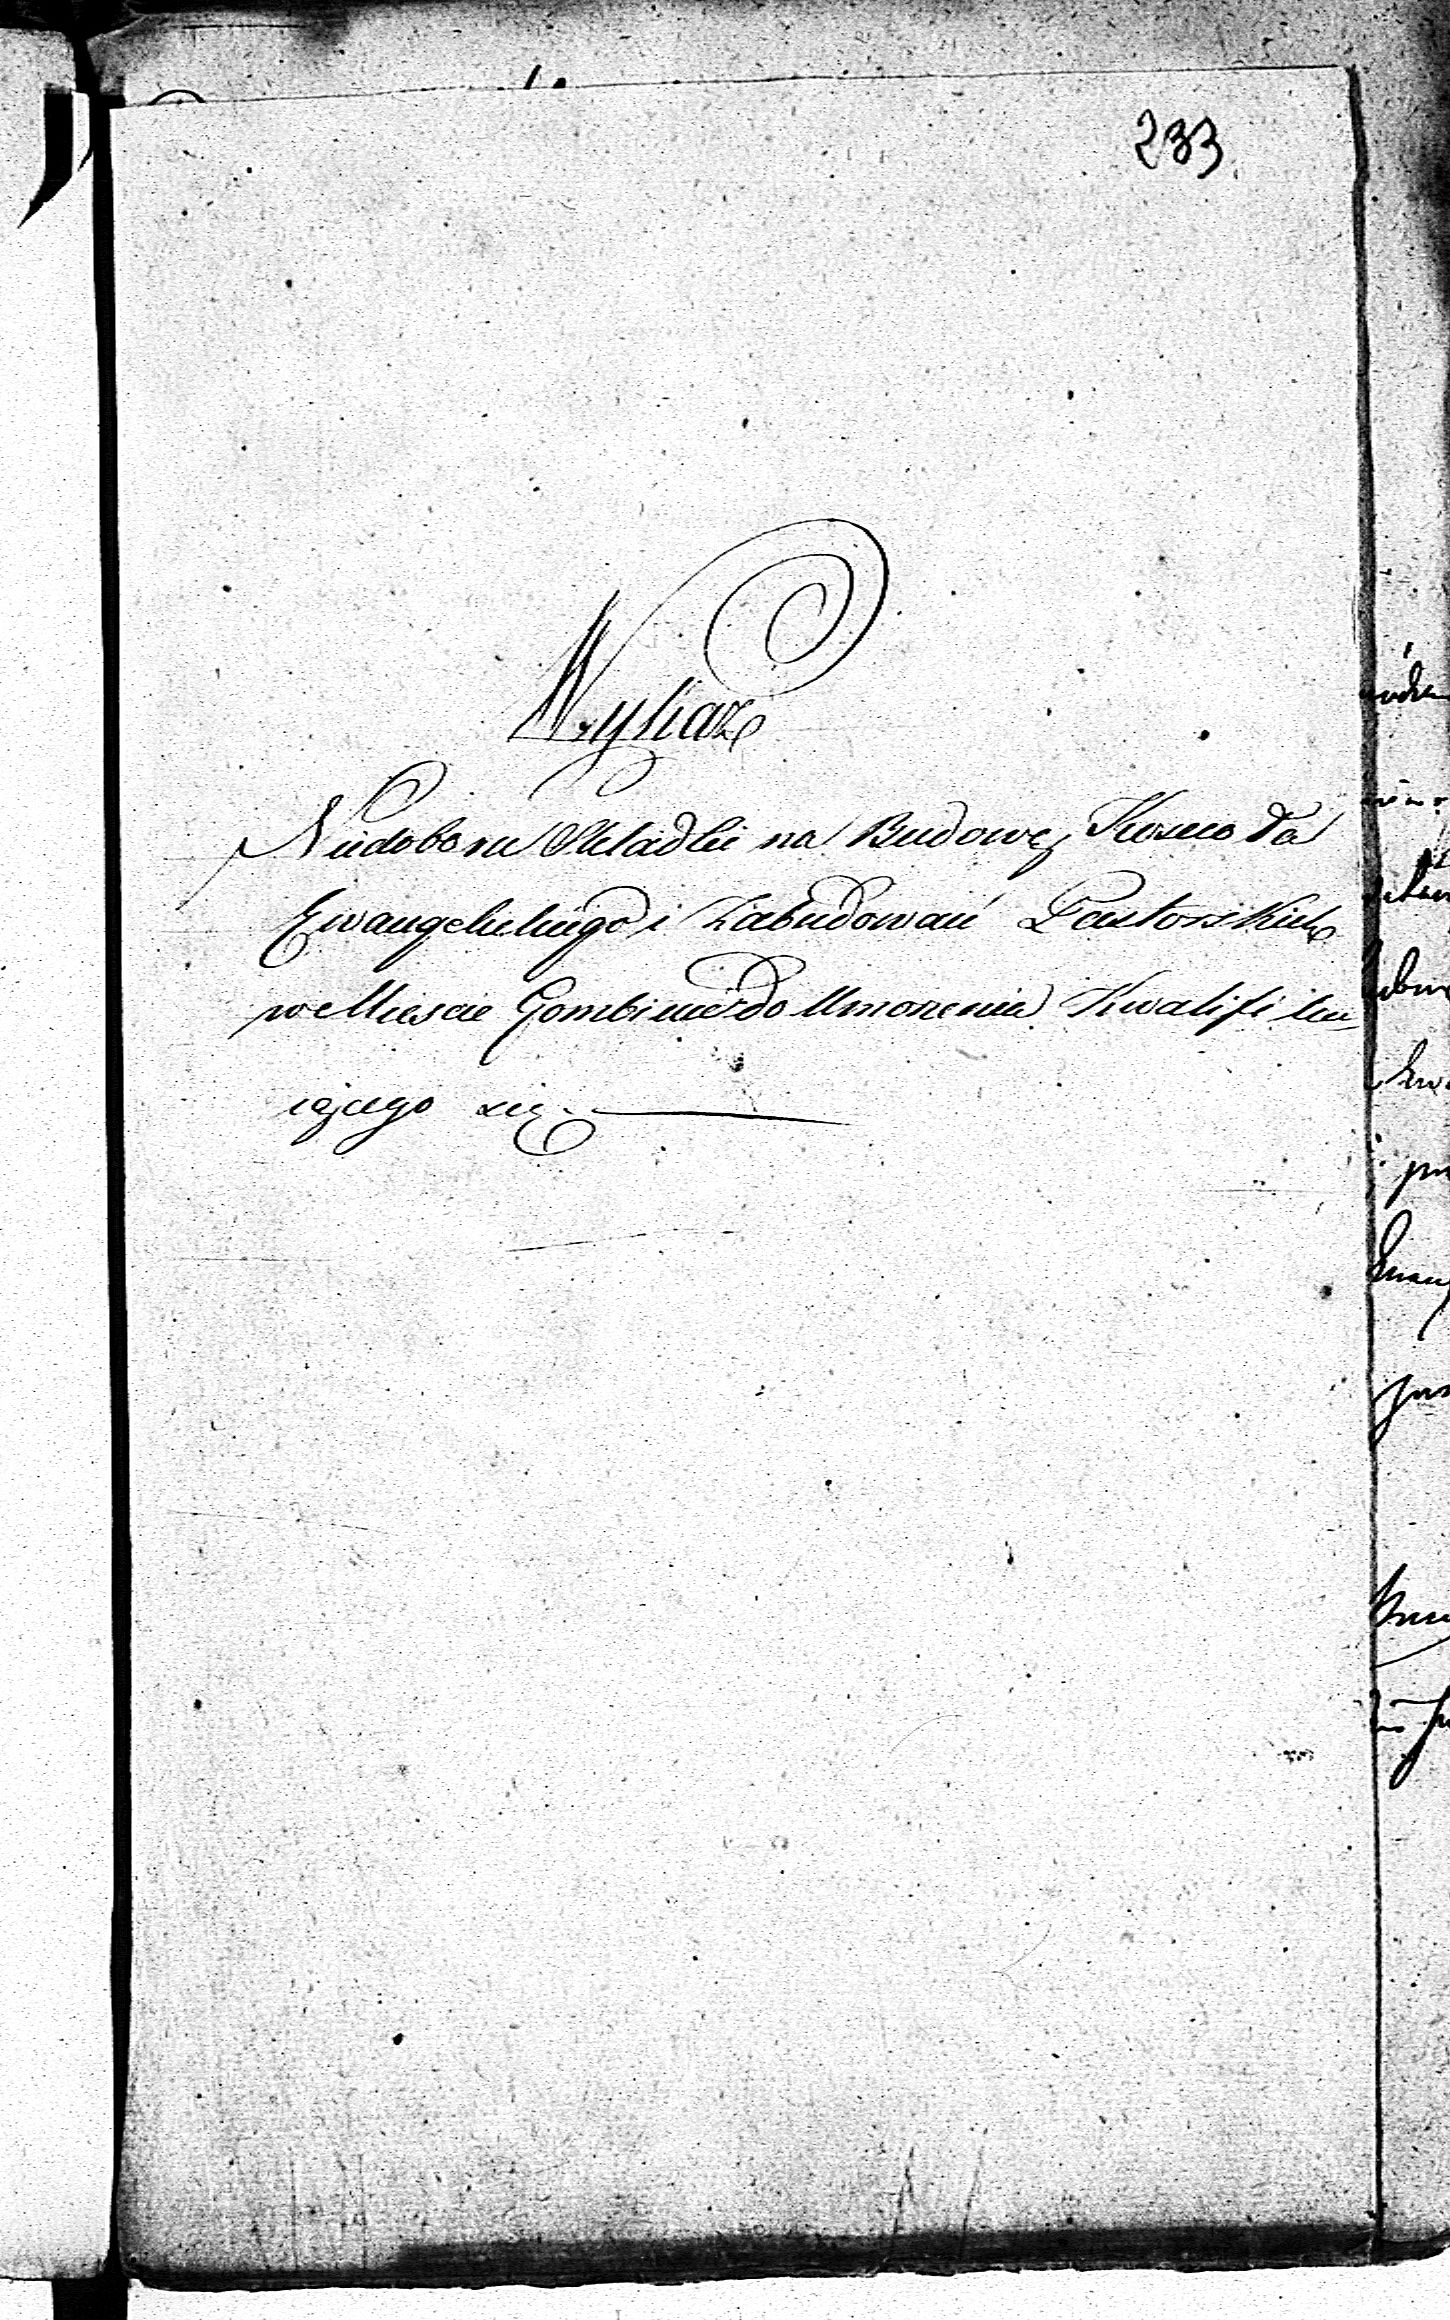 233
Wykaz
Niedoboru Składki na Budowę Koscioła
Ewangelickiego i Zabudowań Pastorskich
w Miescie Gombinie do Umorzenia Kwalifiku-
iącego się